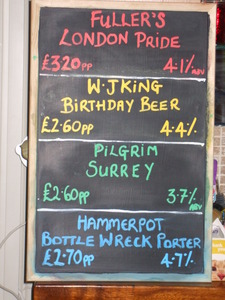 FULLER'S
LONDON PRIDE
£3.20pp 4.1% ABV
W.J KING
BIRTHDAY BEER
£2.60pp 4.4%
PILGRIM
SURREY
£2.60pp 3.7% ABV
HAMMERPOT
BOTTLE WRECK PORTER
£2.70pp 4.7%